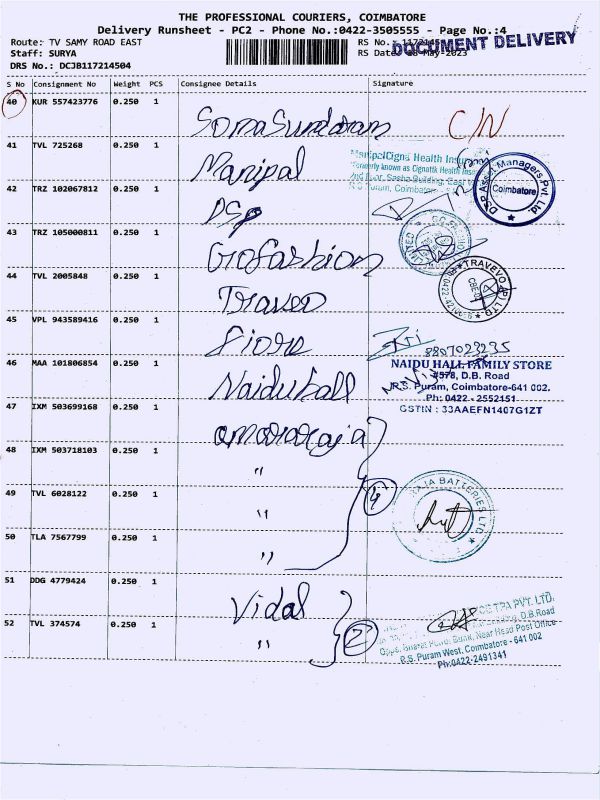 THE PROFESSIONAL COURIERS, COIMBATORE
Delivery Runsheet - PC2 - Phone No.:0422-3505555 - Page No.:4
Route: TV SAMY ROAD EAST
Staff: SURYA
DRS No.: DCJB117214504
RS No.:
RS Date: 18-May-2023
DOCUMENT DELIVERY
S No Consignment No Weight PCS Consignee Details Signature
40 KUR 557423776 0.250 1 Somasundaram C/N
41 TVL 725268 0.250 1 Manipal
ManipalCigna Health Insu
formerly known as Cignattk Health Insu
2nd Floor, Sasha Building, East
R.S. Puram, Coimbatore
42 TRZ 102067812 0.250 1 DSP
DSP Asset Managers Pvt. Ltd.
Coimbatore
43 TRZ 105000811 0.250 1 Gofashion
44 TVL 2005848 0.250 1 Traveo
TRAVEVO (P) LTD
45 VPL 943589416 0.250 1 Fiore
8807023235
46 MAA 101806854 0.250 1 Naiduhall
NAIDU HALL FAMILY STORE
#578, D.B. Road
R.S. Puram, Coimbatore-641 002.
Ph: 0422 - 2552151
GSTIN : 33AAEFN1407G1ZT
47 IXM 503699168 0.250 1 amararaja
48 IXM 503718103 0.250 1 "
49 TVL 6028122 0.250 1 " 4
RAJA BATTERIES LTD
50 TLA 7567799 0.250 1 "
51 DDG 4779424 0.250 1 Vidal
52 TVL 374574 0.250 1 " 2
TPA PVT. LTD.
D.B.Road
Bank, Near Head Post Office
R.S. Puram West, Coimbatore - 641 002
Ph:0422-2491341